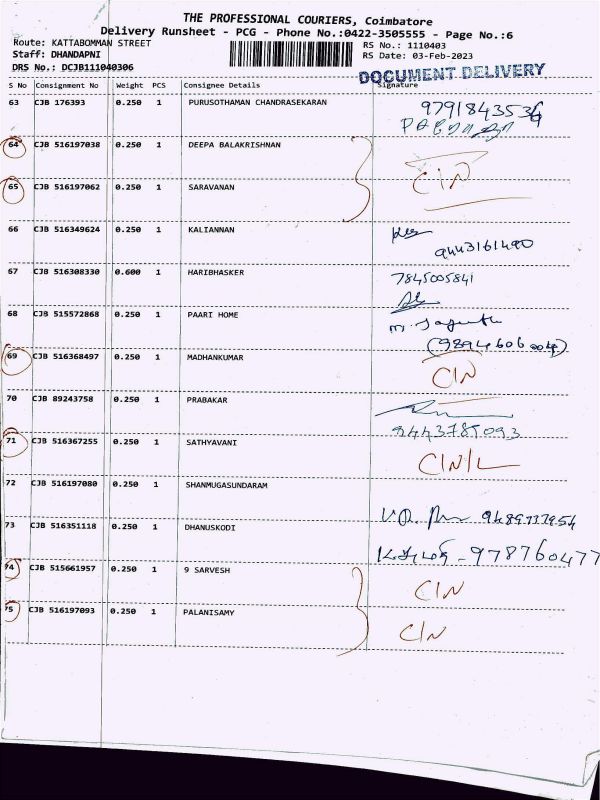 THE PROFESSIONAL COURIERS, Coimbatore
Delivery Runsheet - PCG - Phone No.:0422-3505555 - Page No.:6
Route: KATTABOMMAN STREET
RS No.: 1110403
Staff: DHANDAPNI
RS Date: 03-Feb-2023
DRS No.: DCJB111040306
DOCUMENT DELIVERY
S No Consignment No Weight PCS Consignee Details Signature
63 CJB 176393 0.250 1 PURUSOTHAMAN CHANDRASEKARAN
64 CJB 516197038 0.250 1 DEEPA BALAKRISHNAN
CIN
65 CJB 516197062 0.250 1 SARAVANAN
66 CJB 516349624 0.250 1 KALIANNAN
9443161490
67 CJB 516308330 0.600 1 HARIBHASKER 7845005841
68 CJB 515572868 0.250 1 PAARI HOME
69 CJB 516368497 0.250 1 MADHANKUMAR CIN
70 CJB 89243758 0.250 1 PRABAKAR
9443785093
71 CJB 516367255 0.250 1 SATHYAVANI CIN/L
72 CJB 516197080 0.250 1 SHANMUGASUNDARAM
73 CJB 516351118 0.250 1 DHANUSKODI
74 CJB 515661957 0.250 1 9 SARVESH CIN
75 CJB 516197093 0.250 1 PALANISAMY CIN